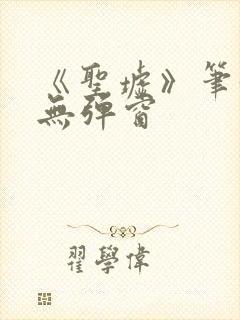 《聖墟》筆
無彈窗
翟學偉